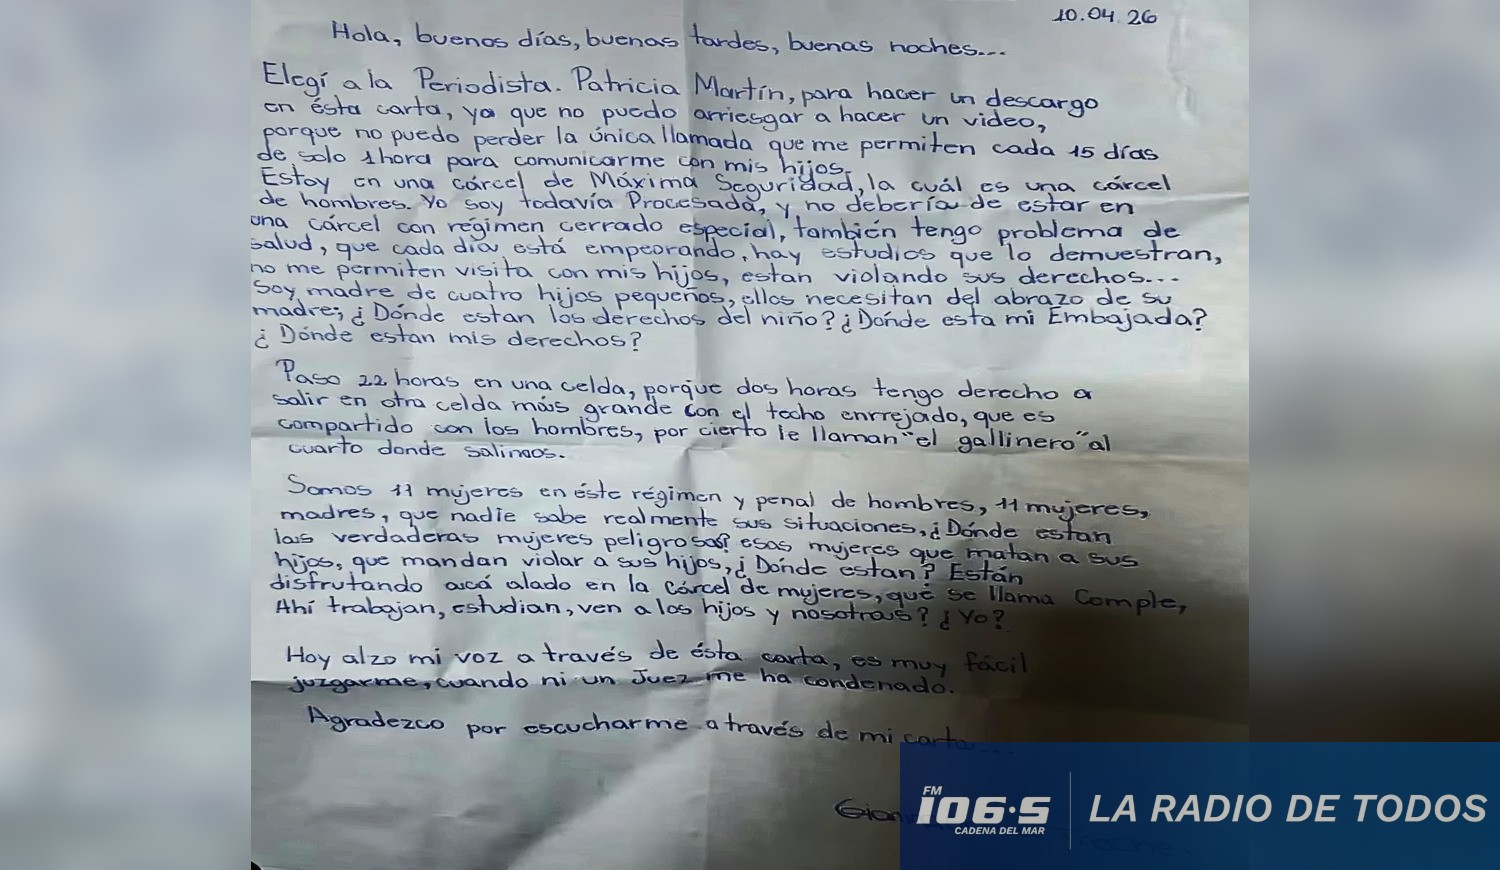 10.04.26
Hola, buenos días, buenas tardes, buenas noches...
Elegí a la Periodista. Patricia Martín, para hacer un descargo
en ésta carta, ya que no puedo arriesgar a hacer un video,
porque no puedo perder la única llamada que me permiten cada 15 días
de solo 1 hora para comunicarme con mis hijos.
Estoy en una cárcel de Máxima Seguridad, la cuál es una cárcel
de hombres. Yo soy todavía Procesada, y no debería de estar en
una cárcel con régimen cerrado especial, también tengo problema de
salud, que cada día está empeorando, hay estudios que lo demuestran,
no me permiten visita con mis hijos, estan violando sus derechos...
Soy madre de cuatro hijos pequeños, ellos necesitan del abrazo de su
madre; ¿Dónde estan los derechos del niño? ¿Dónde esta mi Embajada?
¿Dónde estan mis derechos?
Paso 22 horas en una celda, porque dos horas tengo derecho a
salir en otra celda más grande con el techo enrrejado, que es
compartido con los hombres, por cierto le llaman "el gallinero" al
cuarto donde salimos.
Somos 11 mujeres en éste régimen y penal de hombres, 11 mujeres,
madres, que nadie sabe realmente sus situaciones, ¿Dónde estan
las verdaderas mujeres peligrosas? esas mujeres que matan a sus
hijos, que mandan violar a sus hijos, ¿Dónde estan? Están
disfrutando acá alado en la Cárcel de mujeres, qué se llama Comple,
Ahí trabajan, estudian, ven a los hijos y nosotras? ¿Yo?
Hoy alzo mi voz a través de ésta carta, es muy fácil
juzgarme, cuando ni un Juez me ha condenado.
Agradezco por escucharme a través de mi carta...
FM
106.5
CADENA DEL MAR
LA RADIO DE TODOS